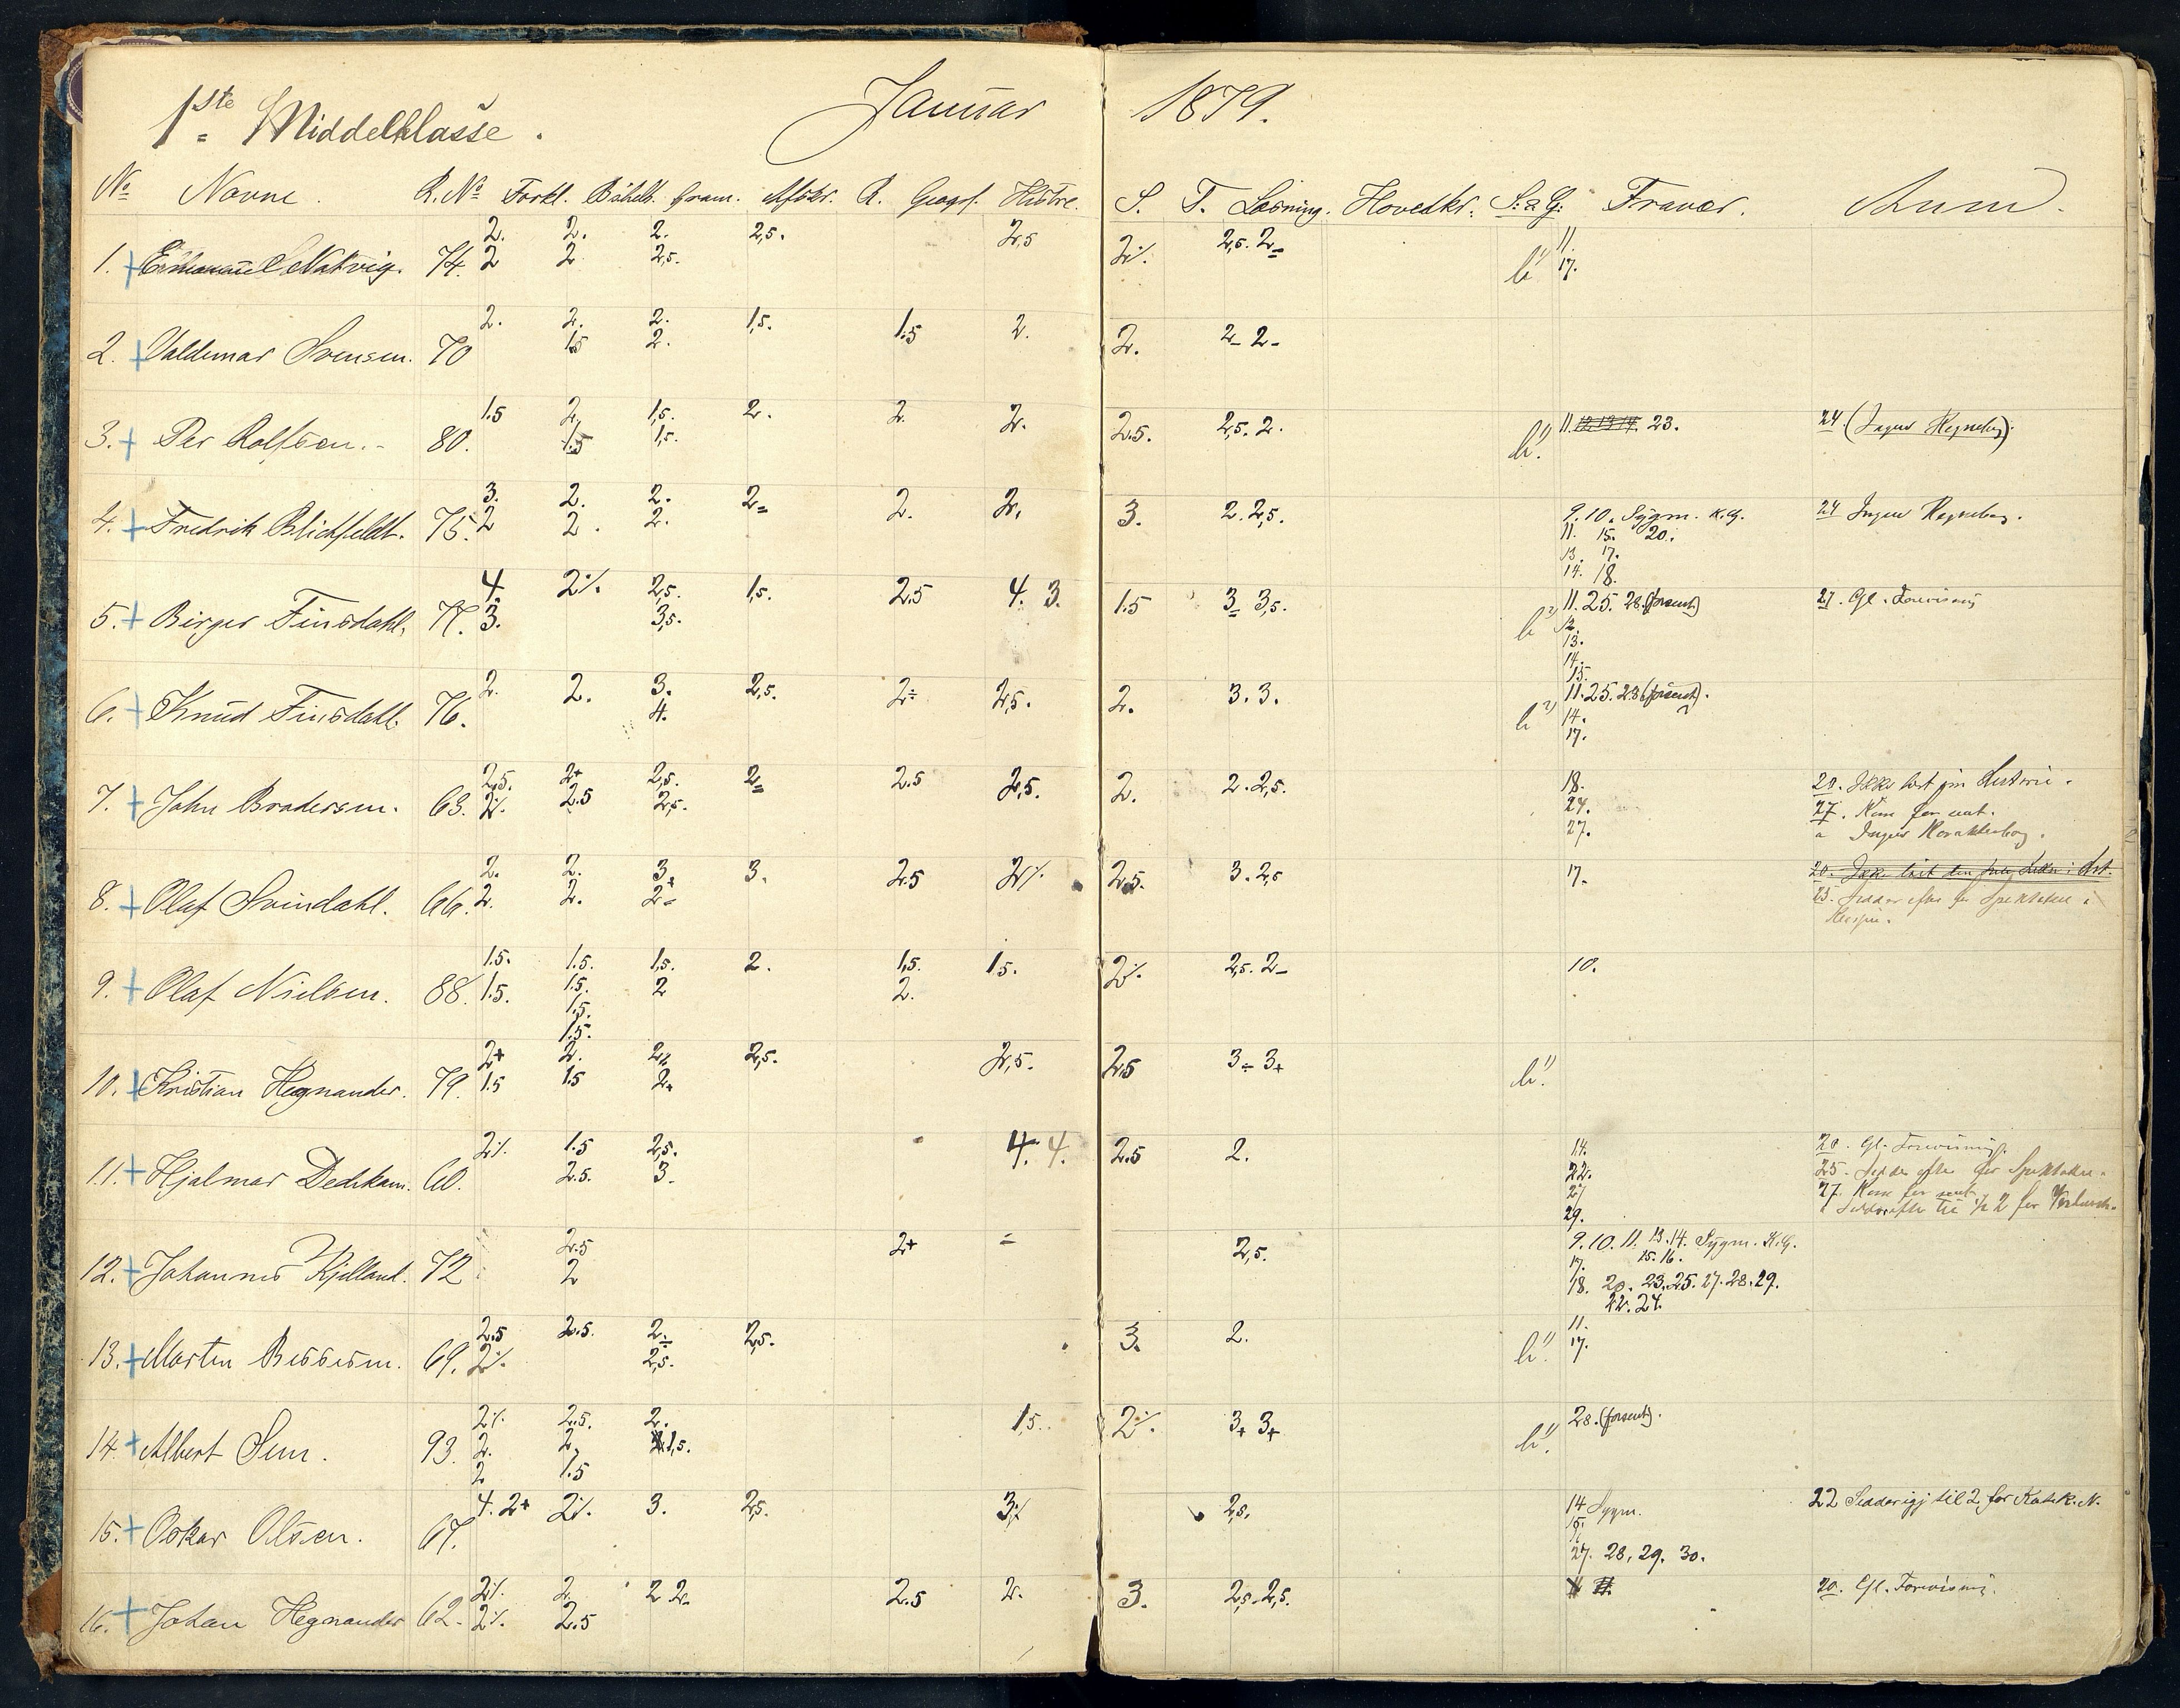 1ste Middelklasse. Januar 1879.
No Navne. R. No Forkl. Bibelh. Gram. Afskr. R. Geogr. Histre. S. T. Læsning. Hovedkr. S. & G. Fravær. Anm.
2. 2. 2. 2,5. 2,5 2,5. 2 11.
1. Emanuel Natvig. 74. 2 2 2,5. 2%. 17.
2. 2. 2. 1,5. 1.5 2. 2 2
2. Valdemar Svensen. 70 1.5 2. 2.
1.5 2. 1,5. 2. 2. 2. 2.5. 2,5. 2. 11. 12. 13. 14. 23. 24. (Ingen Regnebog).
3. Per Rolfsen. 80. 1.5 1,5.
3. 2. 2. 2 2. 2. 3. 2. 2,5. 9. 10. Sygm. K.G. 24 Ingen Regnebog.
4. Fredrik Blichfeldt. 75. 2 2. 2. 11. 15. 20.
13. 17.
14. 18.
4. 2%. 2,5. 1,5. 2.5 4. 3. 1.5 3 3,5. 11. 25. 28. (forsent) 27. Gl. Forvisning
5. Birger Finsdahl. 77. 3. 3,5. 12.
13.
14.
15.
2. 2. 3. 2,5. 2÷ 2,5. 2. 3. 3. 11. 25. 28 (forsent).
6. Knud Finsdahl. 76. 4. 14.
17.
2.5. 2+ 2,5. 2 2.5 2,5. 2. 2. 2,5. 18. 20. Ikke læst sin Historie.
7. John Brodersen. 63. 2%. 2.5 2,5. 24. 27. Kom for sent.
27. Ingen Karakterbog.
2. 2. 3. 3. 2.5 2% 2.5. 3. 2,5 17. 20.
8. Olaf Svindahl. 66. 2. 2. 2 23. Sidder efter for Spektakel i
1.5. 1.5. 1,5. 2. 1,5. 1.5. 2%. 2,5. 2 10.
9. Olaf Nielsen. 88. 1.5. 1.5. 2 2.
1.5.
1.5.
2+ 2. 2 2,5. 2,5. 2.5 3÷ 3+
10. Kristian Hegnander. 79. 1.5 1.5 2+
2%. 1.5 2,5. 4. 4. 2.5 2. 14. 20. Gl. Forvisning.
11. Hjalmar Dedekam. 60. 2.5. 3. 22. 25. Sidder efter for Spektakel.
27 27. Kom for sent
29. Sidder efter til ½ 2 for
2.5 2+ 2,5. 9. 10. 11. 13. 14. Sygm. K.G.
12. Johannes Kjelland. 72 2 17. 15. 16.
18. 20. 23. 25. 27. 28. 29.
22. 24.
2.5 2.5. 2. 2,5. 3. 2. 11.
13. Martin Bessesen. 69. 2%. 2,5. 17.
2%. 2.5. 2. 1,5. 2%. 3+ 3+ 28. (forsent).
14. Albert Sem. 93. 2. 2. 1,5.
2 1.5
4. 2+ 2%. 3. 2,5. 3% 2,5. 14 Sygm. 22 Sidder igj til 2 for Katek. N.
15. Oskar Olsen. 67. 15.
27. 28, 29. 30.
2%. 2. 2 2. 2.5 2. 3. 2,5. 2,5. 20. Gl. Forvisning.
16. Johan Hegnander 62. 2%. 2.5